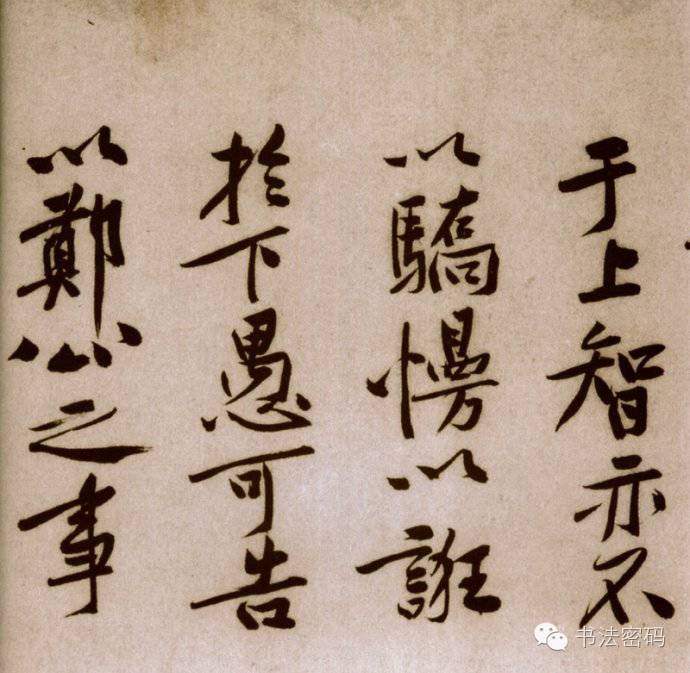 于上智亦不
以驕慢以誑
於下愚可告
以鄭公之事
书法密码